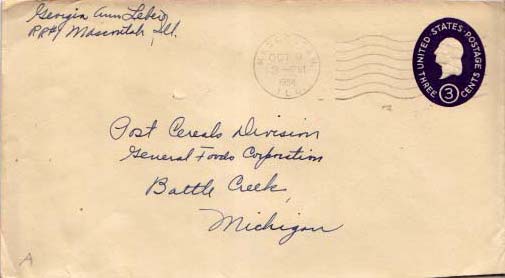 Georgia Ann Leber
RR#1 Mascoutah, Ill.
MASCOUTAH
OCT 9
1956
ILL.
UNITED · STATES · POSTAGE
THREE 3 CENTS
Post Cereals Division
General Foods Corporation
Battle Creek,
Michigan
A